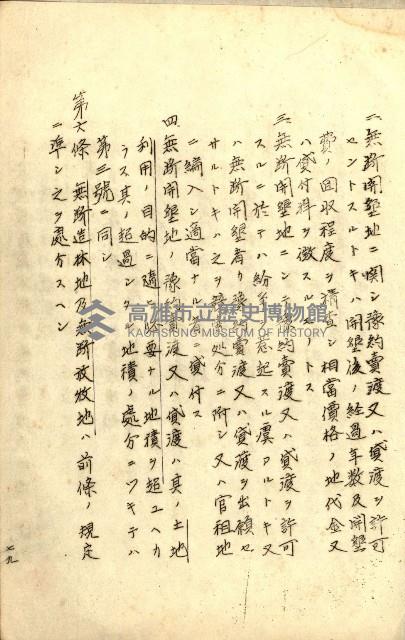 二、無断開墾地ニ関シ豫約賣渡又ハ貸渡ヲ許可
セントスルトキハ開墾後ノ経過年数及開墾
費ノ回収程度ヲ精査シ相當價格ノ地代金又
ハ貸付料ヲ徴スルコトトス
三、無断開墾地ニシテ豫約賣渡又ハ貸渡ヲ許可
スルニ於テハ紛争ヲ惹起スル虞アルトキ又
ハ無断開墾者カ豫約賣渡又ハ貸渡ヲ出願セ
サルトキハ之ヲ処分ニ附シ又ハ官租地
ニ編入シ適當ナル者ニ貸付ス
四、無断開墾地ノ豫約賣渡又ハ貸渡ハ其ノ土地
利用ノ目的ニ随ヒ必要ナル地積ヲ超ユヘカ
ラス其ノ超過シタル地積ノ處分ニツキテハ
第三號ニ同シ
第六條 無断造林地及無断放牧地ハ前條ノ規定
ニ準シ之ヲ處分スヘシ
七九
高雄市立歷史博物館
KAOHSIUNG MUSEUM OF HISTORY